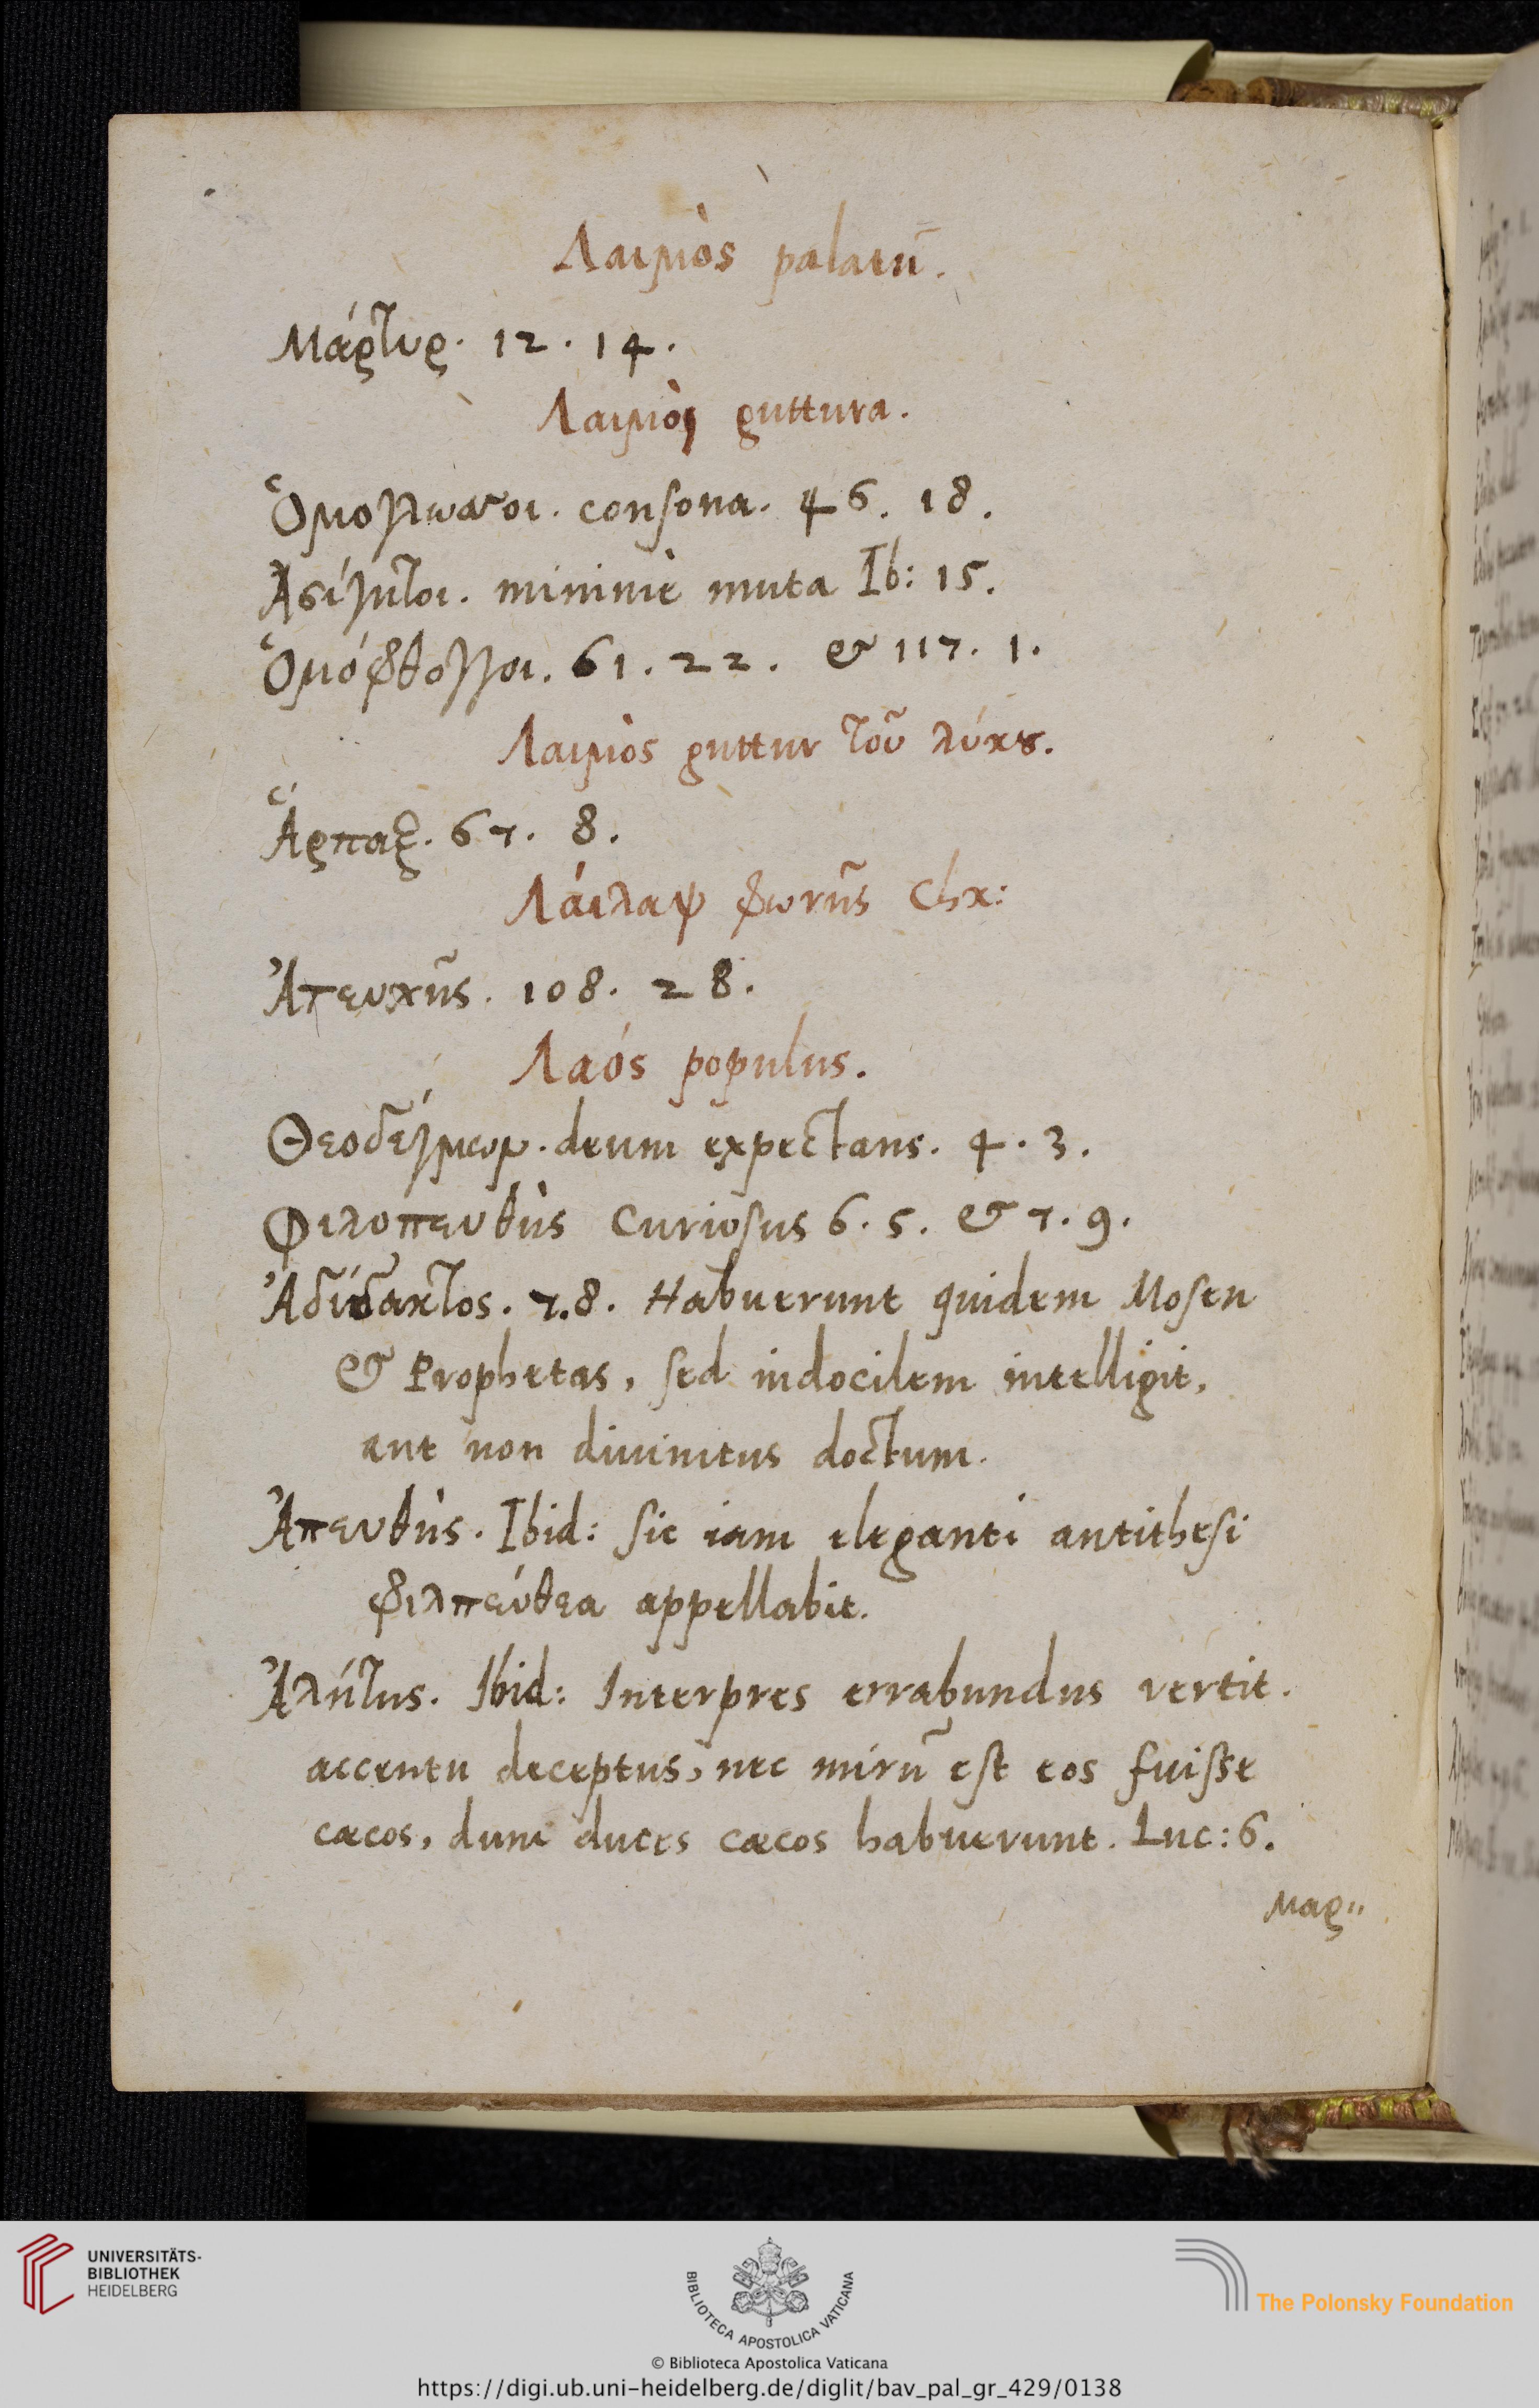 Λαιμὸς palatū.
Μάρτυρ. 12. 14.
Λαιμὸς guttura.
Ὁμογλωσσοι. consona. 46. 18.
Ἀσίγητοι. minimè muta Ib: 15.
Ὁμόφθογγοι. 61. 22. & 117. 1.
Λαιμὸς guttur τοῦ λύκȣ.
Ἅρπαξ. 67. 8.
Λάιλαψ φωνῆς
Ἀτευχῆς. 108. 28.
Λαός populus.
Θεοδέγμων. deum expectans. 4. 3.
Φιλοπευθὴς Curiosus 6. 5. & 7. 9.
Ἀδίδακτος. 7.8. Habuerunt quidem Mosen
& Prophetas, sed indocilem intelligit,
aut non diuinitus doctum.
Ἀπευθὴς. Ibid: sic iam eleganti antithesi
φιλπεύθεα appellabit.
Ἀλήτης. Ibid: Interpres errabundus vertit.
accentu deceptus, nec mirū est eos fuisse
cæcos, dum duces cæcos habuerunt. Luc: 6.
Μαρ"
UNIVERSITÄTS-
BIBLIOTHEK
HEIDELBERG
BIBLIOTECA APOSTOLICA VATICANA
The Polonsky Foundation
© Biblioteca Apostolica Vaticana
https://digi.ub.uni-heidelberg.de/diglit/bav_pal_gr_429/0138